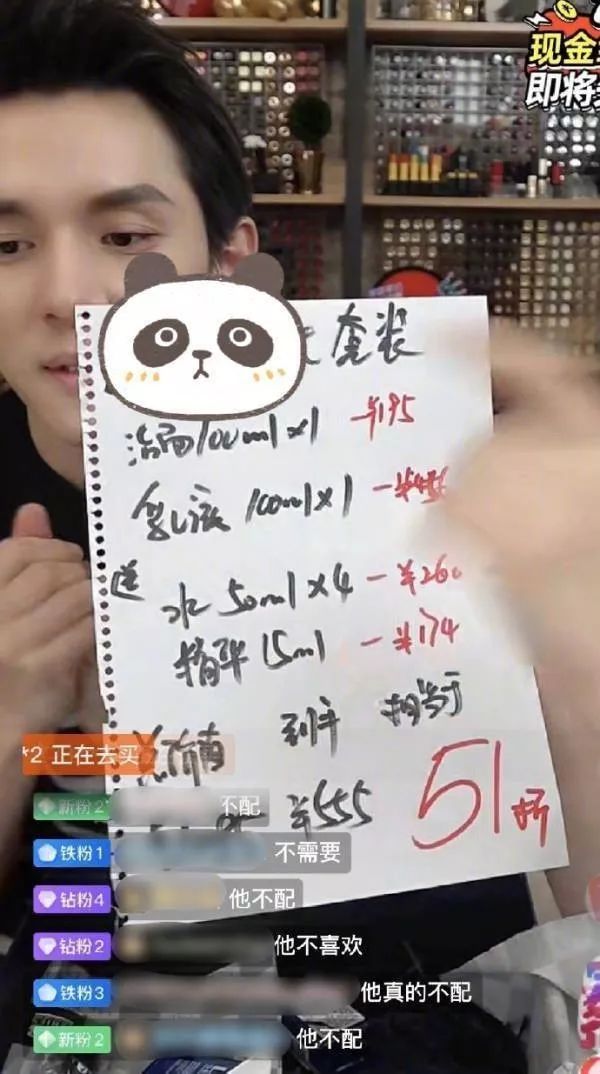 现金
即将
套装
洁面100ml×1 ¥195
乳液 100ml×1 —¥
送
水 50ml×4 —¥260
精华 15ml —¥174
总价值 到手 相当于
¥555 51折
*2 正在去买
新粉2 不配
铁粉1 不需要
钻粉4 他不配
钻粉2 他不喜欢
铁粉3 他真的不配
新粉2 他不配